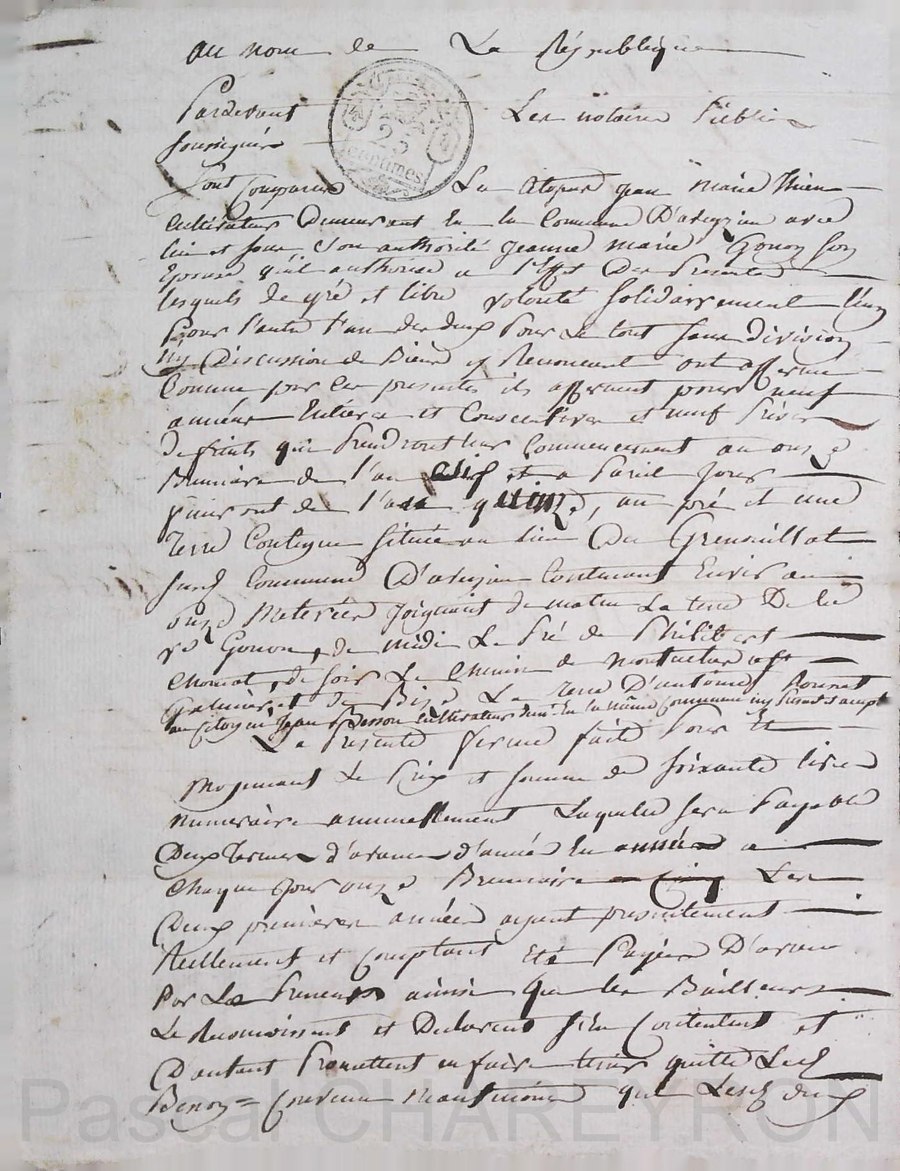 au nom de La République
Pardevant Les notaires Publics
soussignés
25
centimes
Sont Comparus Le Citoyen jean marie
Cultivateur Demeurant En la Commune D'aveyzieu avec
lui et sous son authorité jeanne marie Gonon son
Epouse qu'il authorise a l'Effet Des Presentes
lesquels de gré et libre volonté solidairement l'un
Pour l'autre l'un des deux Pour Le tout sans division
ny Discussion de Biens y Renoncent ont affermé
Comme par Ces presentes ils afferment pour neuf
années Entieres et Consecutives et neuf Prises
De fruits qui Prendront leur Commencement au onze
Brumaire de l'an six et a Pareil jour
finiront de l'an quinze, un pré et une
Terre Contigue située au lieu Du Grenouillat
susd Commune D'aveyzieu Contenant Environ
onze Meterées joignant de matin La terre De la
ve Gonon, de midi Le Pré de Philibert
Chomat, de soir Le Chemin de
et De Bize La Terre D'antoine
au Citoyen Jean Besson Cultivateur demt En la même Commune icy Present & acceptant
La Presente ferme faite Pour Et
Moyennant Le Prix et somme de soixante livres
numeraire annuellement Laquelle sera Payable
Deux Termes d'avance d'année En année a
Chaque jour onze Brumaire Les
Deux premieres années ayant presentement
Reellement et Comptant Eté Payées D'avance
Par Le Preneur ainsi que les Bailleurs
Le Reconnoissent et Declarent s'en Contentent et
D'autant Promettent en faire tenir quitte Led
Besson = Convenu Neantmoins que Lesd deux
Pascal CHAREYRON